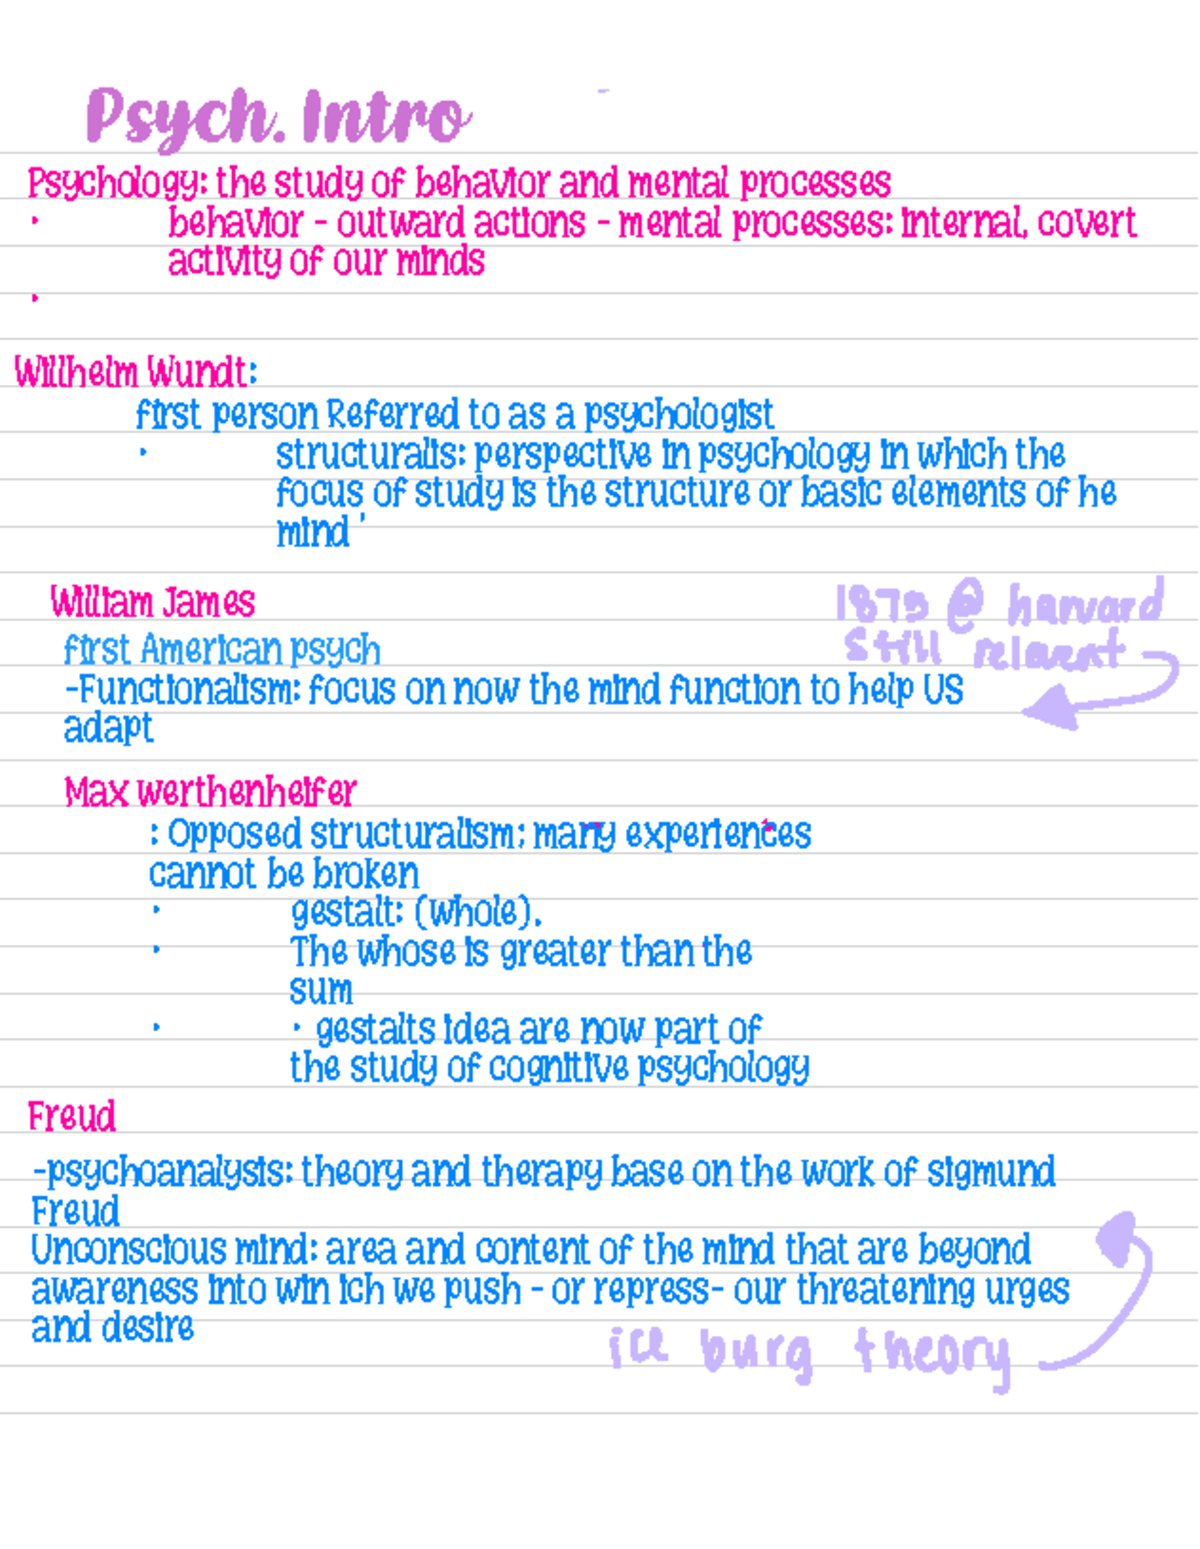 Psych. Intro
Psychology: the study of behavior and mental processes
· behavior - outward actions - mental processes: internal, covert
activity of our minds
·
Willhelm Wundt:
first person Referred to as a psychologist
· structuralis: perspective in psychology in which the
focus of study is the structure or basic elements of he
mind '
William James
1875 @ harvard
still relevent
first American psych
-Functionalism: focus on now the mind function to help US
adapt
Max werthenheifer
: Opposed structuralism; many experiences
cannot be broken
· gestalt: (whole).
· The whose is greater than the
sum
· · gestalts idea are now part of
the study of cognitive psychology
Freud
-psychoanalysis: theory and therapy base on the work of sigmund
Freud
Unconscious mind: area and content of the mind that are beyond
awareness into win ich we push - or repress- our threatening urges
and desire
ice burg theory